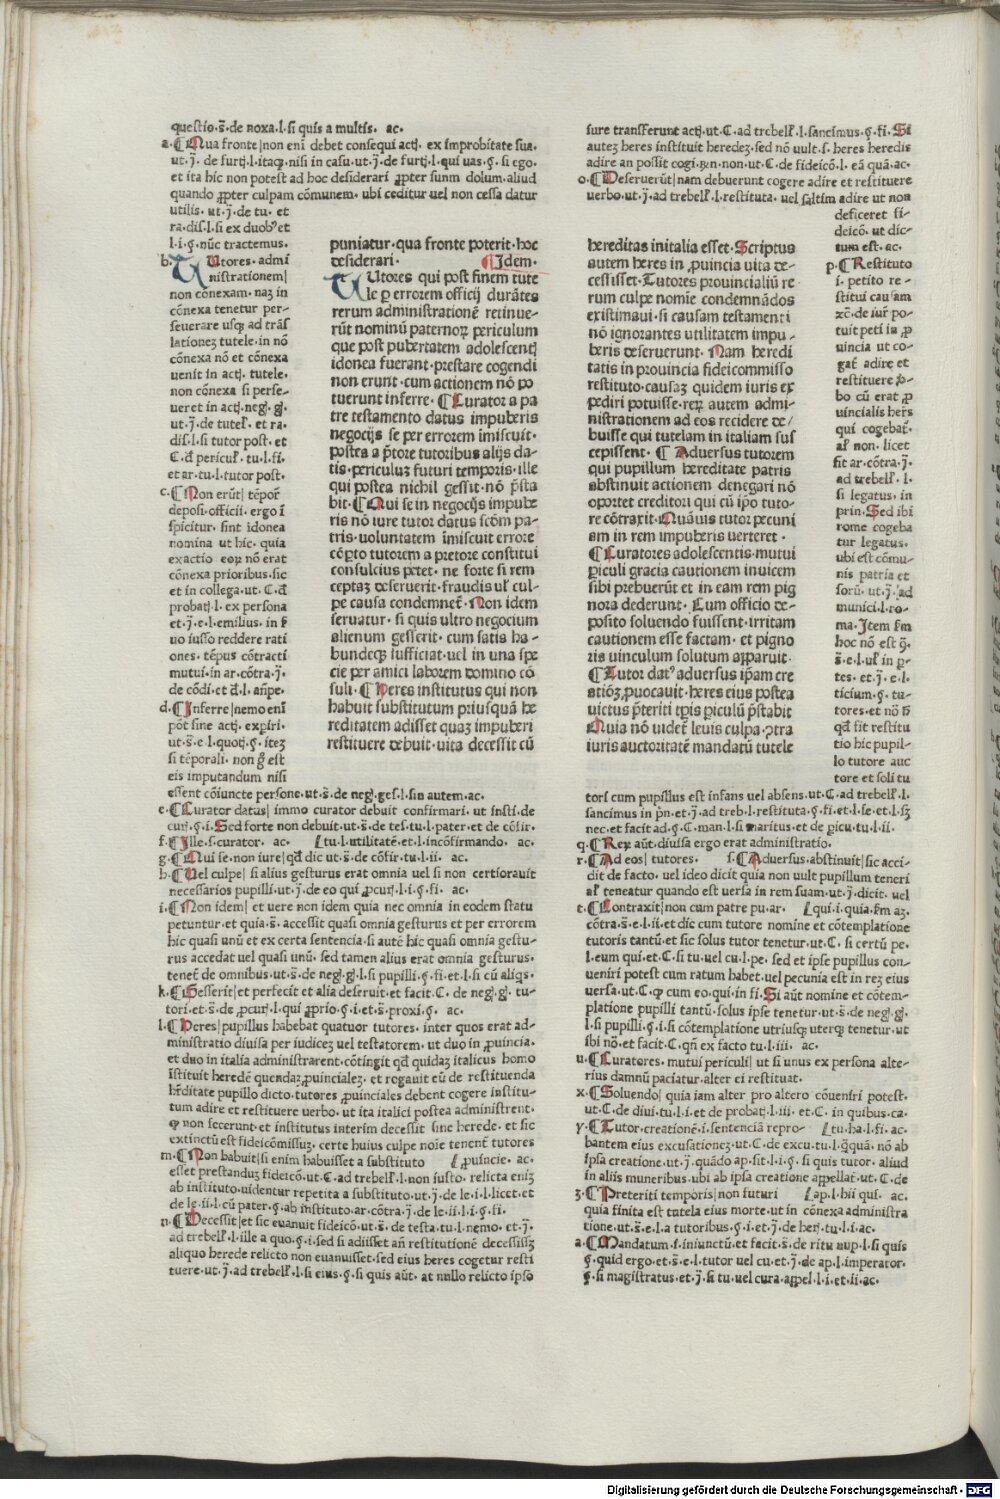 questio.s̄.de noxa.l.si quis a multis. ac.
a.¶Qua fronte|non eni debet consequi actī. ex improbitate sua.
ut.j̄. de furtī.l.itaqꝫ.nisi in casu.ut.j̄.de furtī.l.qui uas.§.si ego.
et ita hic non potest ad hoc desiderari ꝓpter suum dolum.aliud
quando ꝓpter culpam cōmunem. ubi ceditur uel non cessa datur
utilis. ut.j̄.de tu. et
ra.dis.l.si ex duobꝰ et
l.i.§.nūc tractemus.
b.¶Utores.admi
nistrationem|
non cōnexam. naꝫ in
cōnexa tenetur per-
seuerare usqꝫ ad trās
lationeꝫ tutele.in nō
cōnexa nō et cōnexa
uenit in actī. tutele.
non cōnexa si perse-
ueret in actī.negī.gī.
ut.j̄.de tuteł. et ra.
dis.l.si tutor post.et
C.đ pericuł. tu.l.fi.
et ar.tu.l.tutor post.
c.¶Non erūt| tēpoř
deposi.officii. ergo ī
spicitur. sint idonea
nomina ut hic. quia
exactio eoꝝ nō erat
cōnexa prioribus.sic
et in collega.ut. C.đ
probatī.l. ex persona
et.j̄.e.l.emilius. in f
uo iusso reddere rati
ones. tēpus cōtracti
mutui.in ar.cōtra.j̄.
de cōdi.et đ.l. añpe.
d.¶Inferre|nemo enī
pōt sine actī. exꝑiri.
ut.s̄.e.l.quotī.§. iteꝫ
si tēporali. non ḡ est
eis imputandum nisi
essent cōiuncte persone.ut.s̄.de negī.ges.l.sin autem.ac.
e.¶Curator datus| immo curator debuit confirmari. ut insti.de
curī.§.i.Sed forte non debuit.ut.s̄.de tes.tu.l.pater.et de cōfir.
f.¶Ille.s.curator. ac. [tu.l.utilitatē.et.l.incōfirmando. ac.
g.¶Qui se.non iure|qđ dic ut.s̄.de cōfir.tu.l.ii. ac.
h.¶Uel culpe| si alius gesturus erat omnia uel si non certiorauit
necessarios pupilli.ut.j̄.de eo qui ꝓcurī.l.i.§.fi. ac.
i.¶Non idem|et uere non idem quia nec omnia in eodem statu
petuntur.et quia.s̄. accessit quasi omnia gesturus et per errorem
hic quasi unū et ex certa sentencia.si autē hic quasi omnia gestu-
rus accedat uel quasi unū. sed tamen alius erat omnia gesturus.
tenet̄ de omnibus.ut.s̄.de negī.gī.l.si pupilli.§.fi.et.l.si cū aliqs.
k.¶Gesserit|et perfecit et alia deseruit.et facit.C. de negī.gī. tu-
tori.et.s̄.de ꝓcurī.l.qui ꝓprio.§.i.et.s̄.proxi.§. ac.
l.¶Heres|pupillus habebat quatuor tutores. inter quos erat ad-
ministratio diuisa per iudiceꝫ uel testatorem.ut duo in ꝓuincia.
et duo in italia administrarent.cōtingit qđ quidaꝫ italicus homo
īstituit heredē quendaꝫ ꝓuincialeꝫ. et rogauit eū de restituenda
hr̄editate pupillo dicto.tutores ꝓuinciales debent cogere institu-
tum adire et restituere uerbo.ut ita italici postea administrent.
ꝙ non fecerunt.et institutus interim decessit sine herede. et sic
extinctū est fideicōmissuꝫ. certe huius culpe noīe tenent̄ tutores
m.¶Non habuit|si enim habuisset a substituto [ꝓuincie. ac.
esset prestanduꝫ fideicō.ut.C.ad trebeł.l.non iusto. relicta eniꝫ
ab instituto.uidentur repetita a substituto.ut.j̄.de le.i.l.licet.et
de le.ii.l.cū pater.§.ab instituto.ar.cōtra.j̄.de le.ii.l.i.§.fi.
n.¶Decessit|et sic euanuit fideicō.ut.s̄.de testa.tu.l.nemo.et.j̄.
ad trebeł.l.ille a quo.§.i.sed si adiisset añ restitutionē decessisꝫ
aliquo herede relicto non euanuisset.sed eius heres cogetur resti
tuere.ut.j̄.ad trebeł.l.si eius.§.si quis aūt. at nullo relicto ipso
puniatur.qua fronte poterit.hoc
desiderari. ¶Idem.
TUtores qui post finem tute
le ꝑ errorem officij durātes
rerum administrationē retinue-
rūt nominū paternoꝝ periculum
que post pubertatem adolescentī
idonea fuerant.prestare cogendi
non erunt.cum actionem nō po
tuerunt inferre.¶Curator a pa
tre testamento datus impuberis
negocijs se per errorem imiscuit.
postea a p̄tore tutoribus alijs da-
tis.periculuꝫ futuri temporis.ille
qui postea nichil gessit.nō p̄sta
bit.¶Qui se in negocijs impube
ris nō iure tutor datus scōm pa-
tris.uoluntatem imiscuit errore
cōpto tutorem a pretore constitui
consulcius petet. ne forte si rem
ceptaꝫ deseruerit.fraudis uł cul-
pe causa condemnet̄.Non idem
seruatur. si quis ultro negocium
alienum gesserit.cum satis ha-
bundeqꝫ sufficiat.uel in una spe
cie per amici laborem domino cō
suli.¶Heres institutus qui non
habuit substitutum priusquā he
reditatem adisset quaꝫ impuberi
restituere debuit.uita decessit cū
sure transferunt actī.ut.C.ad trebeł.l.sancimus.§.fi.Si
auteꝫ heres instituit heredeꝫ.sed nō uult.s.heres heredis
adire an possit cogi.ꝶn.non.ut.C.de fideicō.l. eā quā.ac.
o.¶Deseruerūt|nam debuerunt cogere adire et restituere
uerbo.ut.j̄.ad trebeł.l.restituta. uel saltim adire ut non
deficeret fi-
deicō. ut dic-
tum est. ac.
p.¶Restituto
s. petito re-
stitui causam
ꝛc̄.de iur̄ po-
tuit peti in ꝓ
uincia ut co-
gat̄ adire et
restituere ꝟ-
bo cū erat ꝓ
uincialis heřs
qui cogebat̄.
ał non. licet
fit ar.cōtra.j̄.
ad trebeł. l.
si legatus. in
prin.Sed ibi
rome cogeba
tur legatus.
ubi est cōmu-
nis patria et
forū. ut.j̄. ad
munici.l.ro-
ma.Item fm
hoc nō est ꝯ̄.
s̄.e.l.uł in ꝑ-
tes. et.j̄. e.l.
ticium.§. tu-
tores.et nō h̄
qđ fit restitu
tio hic pupil-
lo tutore auc
tore et soli tu
tori cum pupillus est infans uel absens.ut.C.ad trebeł.l.
sancimus in p̄n.et.j̄.ad treb.l.restituta.§.fi.et.l.se.et.l.sꝫ
nec.et facit ad.§.C.man.l.si maritus.et de ꝑicu.tu.l.ii.
q.¶Reꝝ aūt.diuisa ergo erat administratio.
r.¶Ad eos| tutores. s.¶Aduersus.abstinuit|sic acci-
dit de facto. uel ideo dicit quia non uult pupillum teneri
ał teneatur quando est uersa in rem suam.ut.j̄.dicit. uel
t.¶Contraxit|non cum patre pu.ar. [qui.i.quia.fm aꝫ.
cōtra.s̄.e.l.ii.et dic cum tutore nomine et cōtemplatione
tutoris tantū.et sic solus tutor tenetur.ut.C. si certū pe.
l.eum qui.et.C.si tu.uel cu.l.pe. sed et ipse pupillus con-
ueniri potest cum ratum habet.uel pecunia est in reꝫ eius
uersa.ut.C. ꝙ cum eo.qui.in fi.Si aūt nomine et cōtem-
platione pupilli tantū.solus ipse tenetur.ut.s̄.de negī.gī.
l.si pupilli.§.i.si cōtemplatione utriusqꝫ uterqꝫ tenetur.ut
ibi nō.et facit.C.qñ ex facto tu.l.iii. ac.
u.¶Curatores. mutui periculi| ut si unus ex persona alte-
rius damnū paciatur.alter ei restituat.
x.¶Soluendo| quia iam alter pro altero cōueniri potest.
ut.C.de diui.tu.l.i.et de probatī.l.iii.et.C. in quibus.ca.
y.¶Tutor.creationē.i.sentenciā repro- [tu.ha.l.fi. ac.
bantem eius excusationeꝫ.ut.C.de excu.tu.l.q̄quā. nō ab
ipsa creatione.ut.j̄. quādo ap.sit.l.i.§. si quis tutor. aliud
in aliis muneribus. ubi ab ipsa creatione appellat̄.ut.C.de
ꝫ.¶Preteriti temporis|non futuri [ap.l.hii qui. ac.
quia finita est tutela eius morte.ut in cōnexa administra
tione.ut.s̄.e.l.a tutoribus.§.i.et.j̄.de herī.tu.l.i.ac.
a.¶Mandatum.s.iniunctū.et facit.s̄.de ritu nup.l.si quis
§.quid ergo.et.s̄.e.l.tutor uel cu.et.j̄.de ap.l.imperator.
§.si magistratus.et.j̄.si tu.uel cura.appel.l.i.et.ii.ac.
hereditas initalia esset.Scriptus
autem heres in ꝓuincia uita de-
cessisset.Tutores prouincialiū re-
rum culpe nomīe condemnādos
existimaui.si causam testamenti
nō ignorantes utilitatem impu-
beris deseruerunt. Nam heredi
tatis in prouincia fideicommisso
restituto.causaꝫ quidem iuris ex
pediri potuisse.reꝝ autem admi-
nistrationem ad eos recidere de/
buisse qui tutelam in italiam sus
cepissent.¶Aduersus tutorem
qui pupillum hereditate patris
abstinuit actionem denegari nō
oportet creditori qui cū ipo tuto-
re cōtraxit.Quāuis tutor pecuni
am in rem impuberis uerteret.
¶Curatores adolescentis.mutui
ꝑiculi gracia cautionem inuicem
sibi prebuerūt et in eam rem pig
nora dederunt. Cum officio de-
posito soluendo fuissent.irritam
cautionem esse factam.et pigno
ris uinculum solutum apparuit.
¶Tutor dat' aduersus ip̄am cre
atiōꝫ ꝓuocauit.heres eius postea
uictus p̄teriti tp̄is ꝑiculū p̄stabit
Quia nō uidet̄ leuis culpa ꝯtra
iuris auctoritatē mandatū tutele
Digitalisierung gefördert durch die Deutsche Forschungsgemeinschaft - DFG